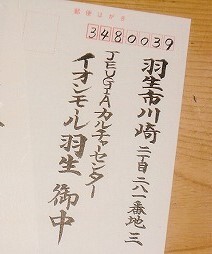 郵便はがき
3480039
羽生市川崎二丁目二八一番地三
JEUGIAカルチャーセンター
イオンモール羽生 御中